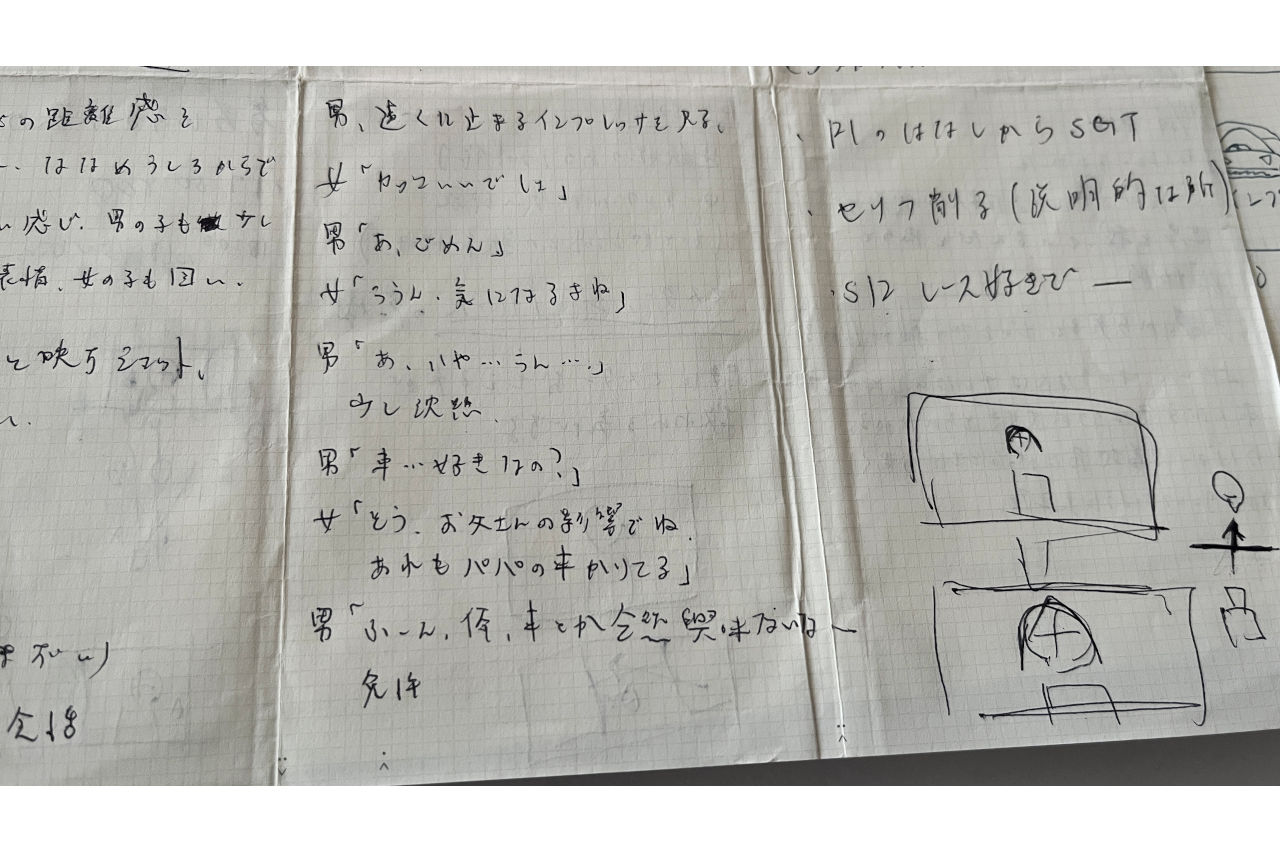 の距離感を
ななめうしろからで
い感じ、男の子も少し
表情、女の子も固い、
と映すショット、
男、遠くに止まるインプレッサを見る、
女「かっこいいでしょ」
男「あ、ごめん」
女「ううん、気になるよね」
男「あ、いや…うん…、」
少し沈黙
男「車…好きなの?」
女「そう、お父さんの影響でね、
あれもパパの車かりてる」
男「ふーん、俺、車とか全然興味ないなー
免許
・P1のはなしからSGT
・セリフ削る(説明的な所)
・S12 レース好きで ―